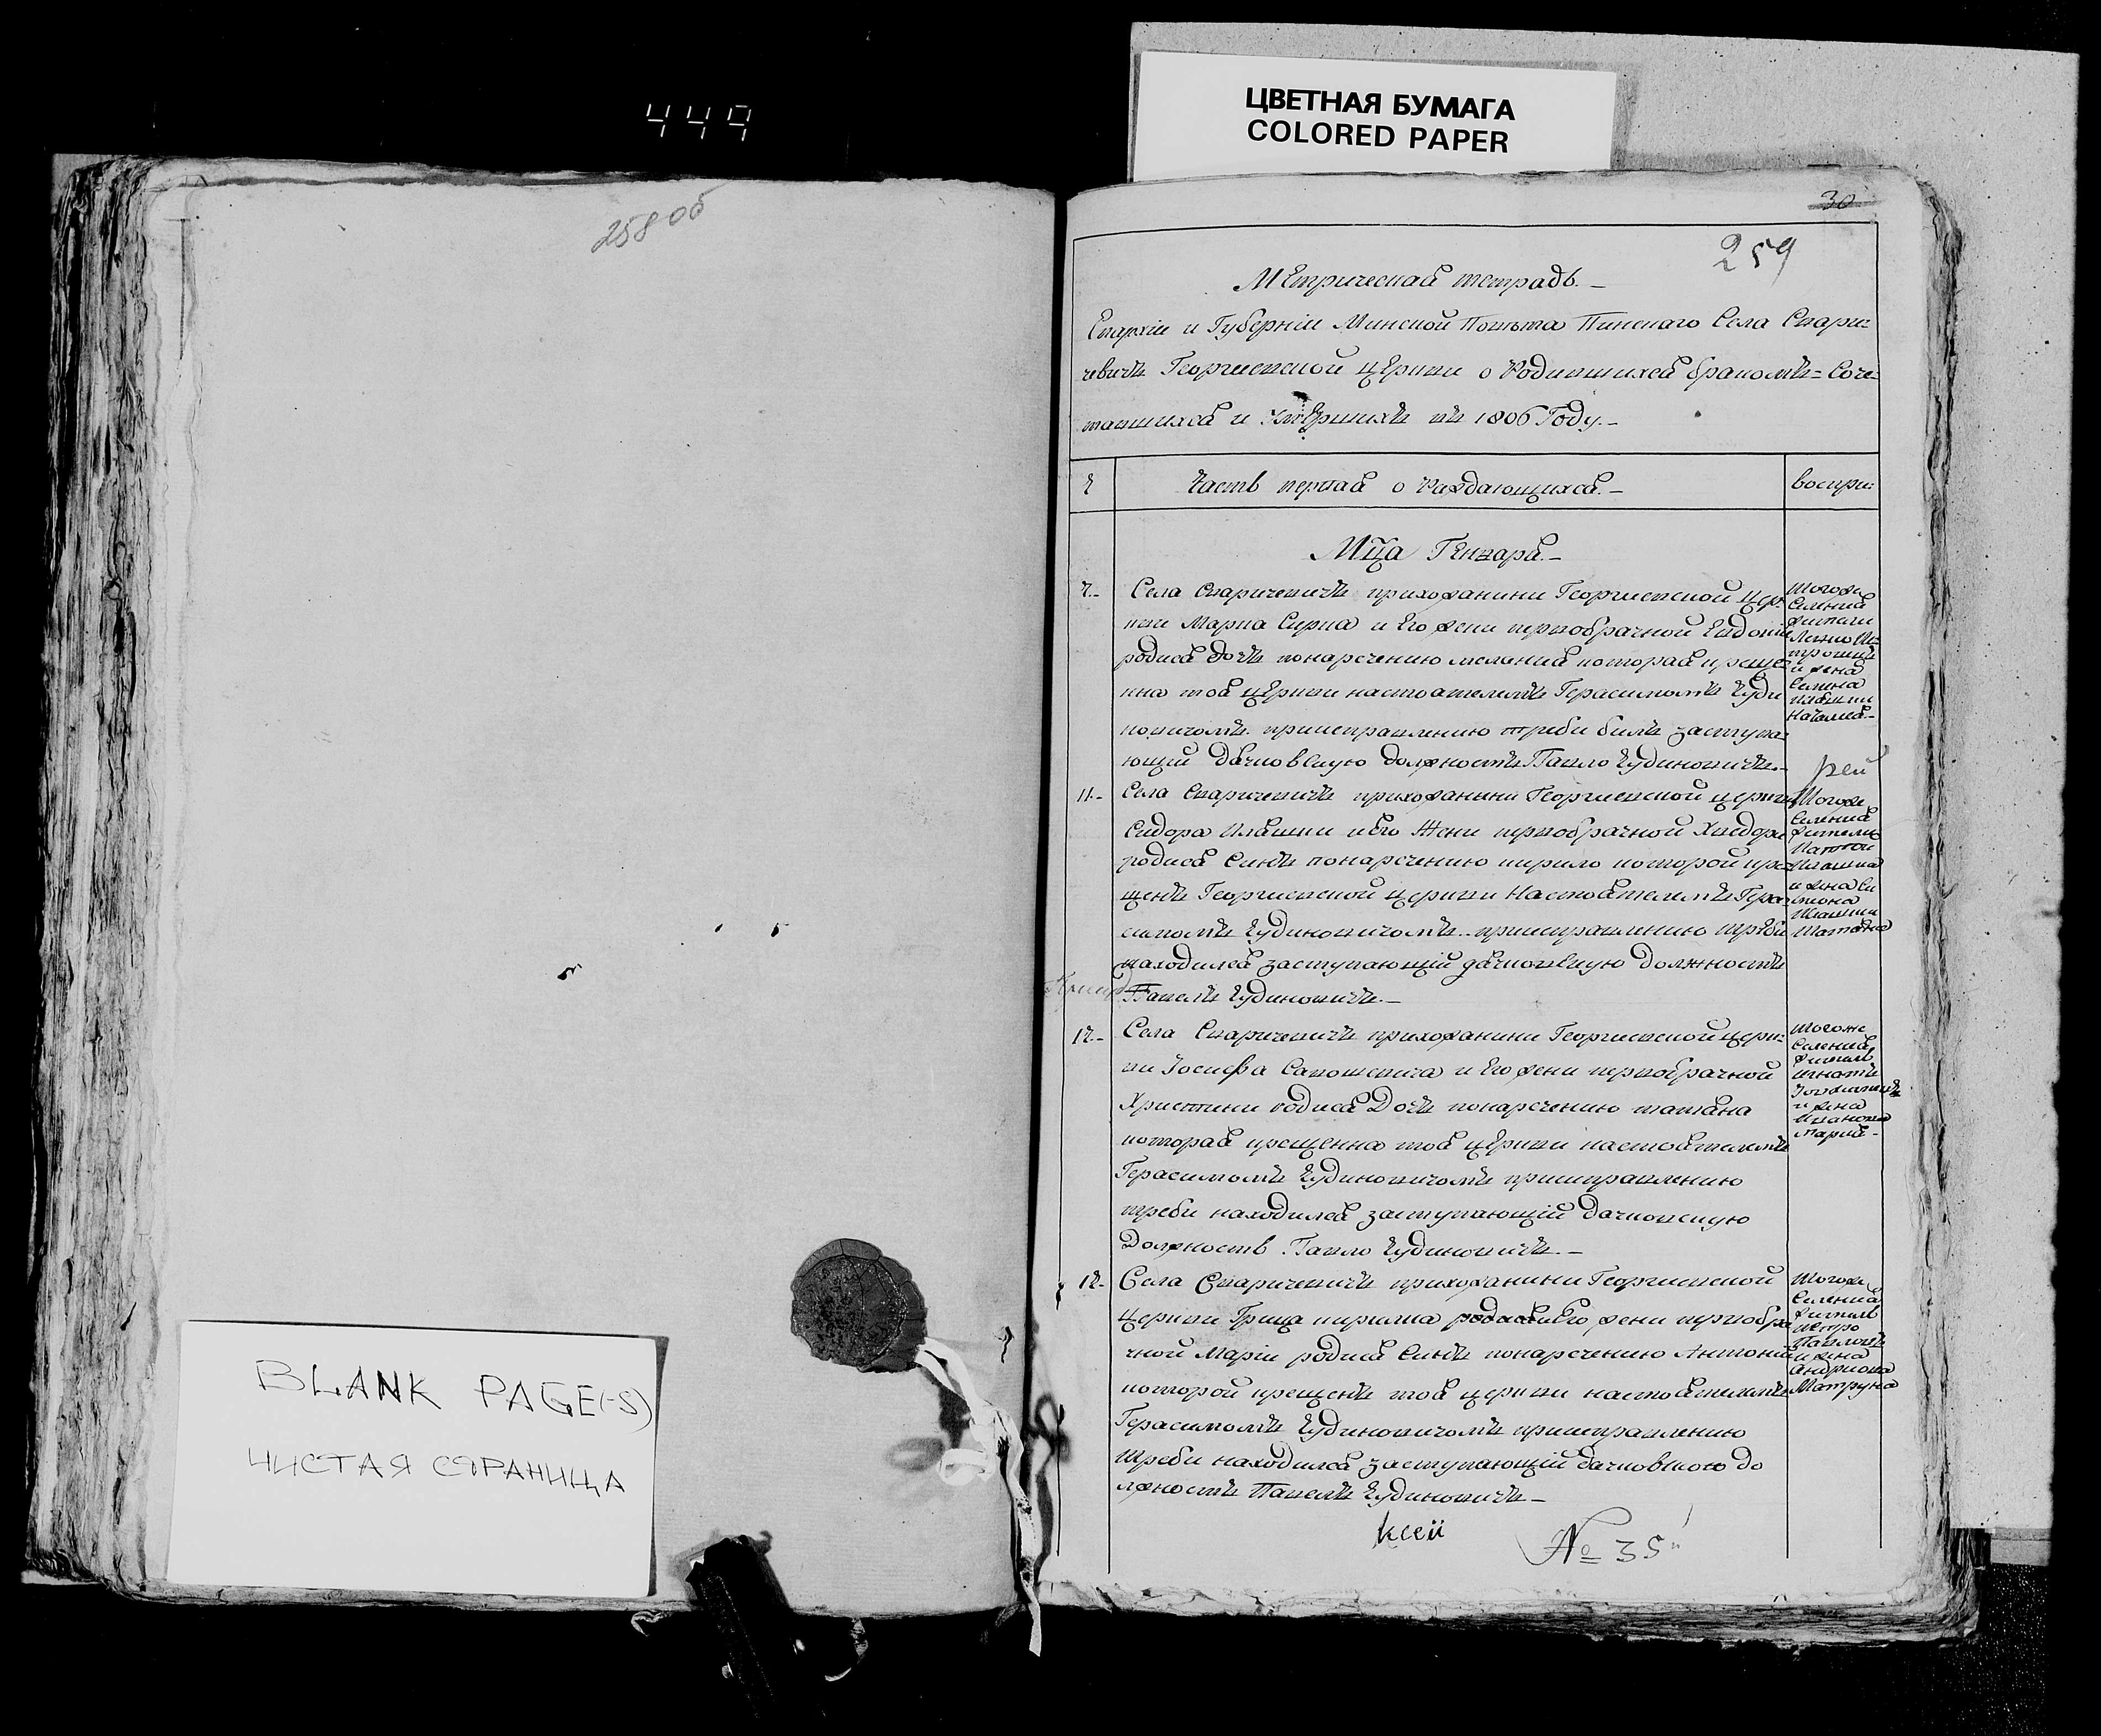 449
ЦВЕТНАЯ БУМАГА
COLORED PAPER
258 об
30
259
Метрическая тетрадь.
Епархіи и Губерніи Минской Повѣта Пинскаго Села Спари-
чевичъ Георгиевской церкви о Родившихся бракомъ=Соче-
тавшихся и Умершихъ въ 1806 Году.
Часть первая о Раждающихся.
воспри:
Мца Генваря.
Села Спаричевичъ прихожанини Георгиевской цер-
кви Марка и Его жени первобрачной Евдокии
родися дочь понаречению мелания которая креще-
нна тоя церкви настоятелемъ Герасимомъ Чуди
новичомъ. приисправлению треби билъ заступа-
ющий дячковскую должностъ Павло Чудиновичъ.
Тогоже
Селения
жители
и жена
Наталия
11.
Села Спаричевичъ прихожанини Георгиевской церкви
Сидора и его Жени первобрачной
родися Синъ понаречению кирило которой кре-
щенъ Георгиевской церкви Настоятелемъ Гера-
симомъ Чудиновичомъ. приисправлению треби
находился заступающий дячковскую должностъ
Павелъ Чудиновичъ.
Тогоже
Селения
жители
и жена
Татяна
12.
Села Спаричевичъ прихожанини Георгиевской церк-
ви Іосифа и Его жени первобрачной
Христини родися Дочь понаречению татяна
которая крещенна тоя церкви настоятелемъ
Герасимомъ Чудиновичомъ приисправлению
треби находился заступающий дячковскую
Должность Павло Чудиновичъ.
Тогоже
Селения
житель
игнатъ
и жена
Иванова
Мария
Села Спаричевичъ прихожанини Георгиевской
церкви Грица и его жени первобра
чной Маріи родися Синъ понаречению Антоний
которой крещенъ тоя церкви настоятелемъ
Герасимомъ Чудиновичомъ приисправлению
Треби находился заступающий дячковскою до
лжностъ Павелъ Чудиновичъ
Тогоже
Селения
житель
петро
и жена
Матруна
ксей
№ 35
BLANK PAGE(-S)
ЧИСТАЯ СТРАНИЦА